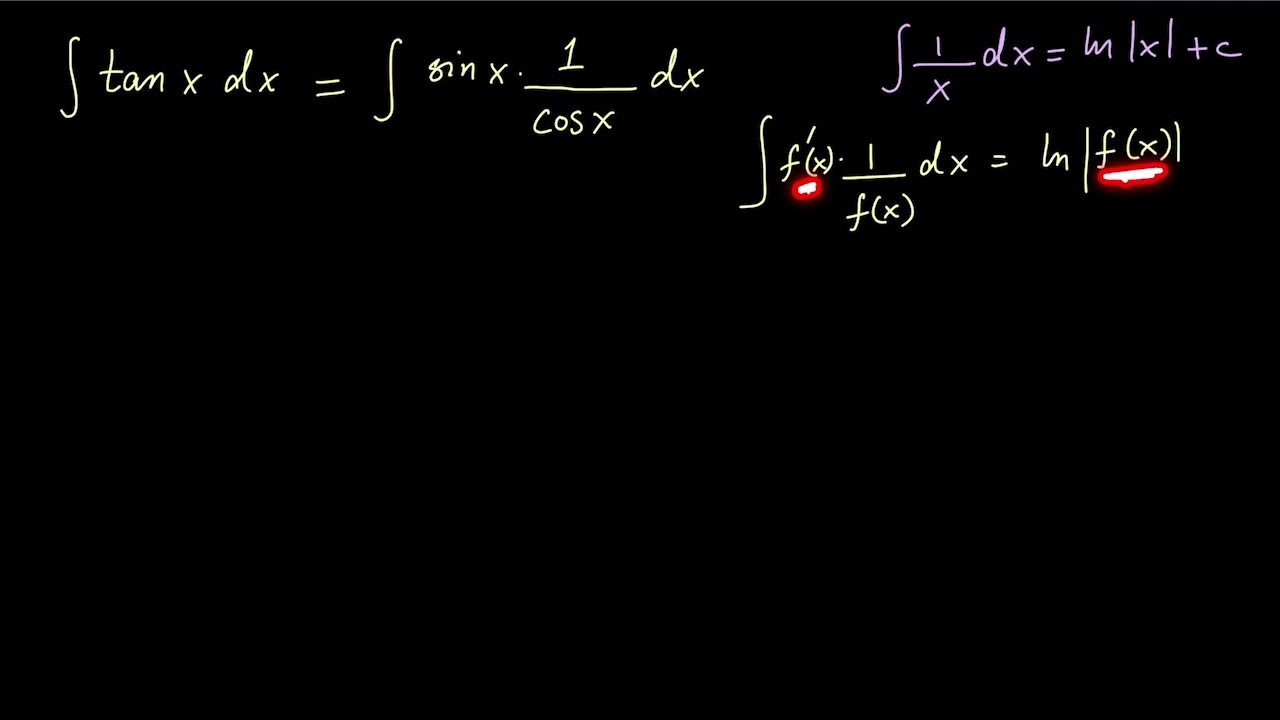 ∫ tan x dx = ∫ sin x · 1/cos x dx
∫ 1/x dx = ln |x| + c
∫ f'(x) · 1/f(x) dx = ln |f(x)|